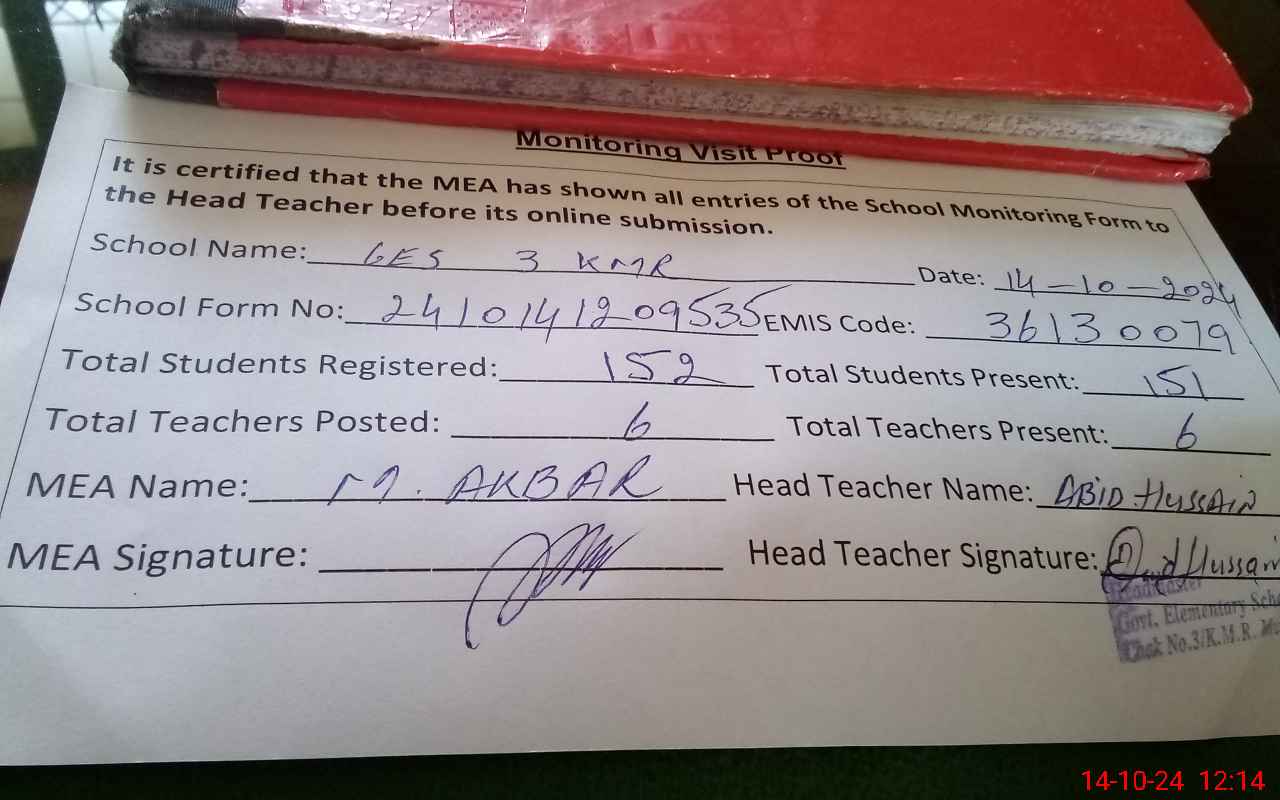 Monitoring Visit Proof
It is certified that the MEA has shown all entries of the School Monitoring Form to
the Head Teacher before its online submission.
School Name: GES 3 KMR Date: 14-10-2024
School Form No: 2410141209535 EMIS Code: 36130079
Total Students Registered: 152 Total Students Present: 151
Total Teachers Posted: 6 Total Teachers Present: 6
MEA Name: M. AKBAR Head Teacher Name: ABID HUSSAIN
MEA Signature: Head Teacher Signature: Hussain
Headmaster
Govt. Elementary
Chak No.3/K.M.R.
14-10-24 12:14